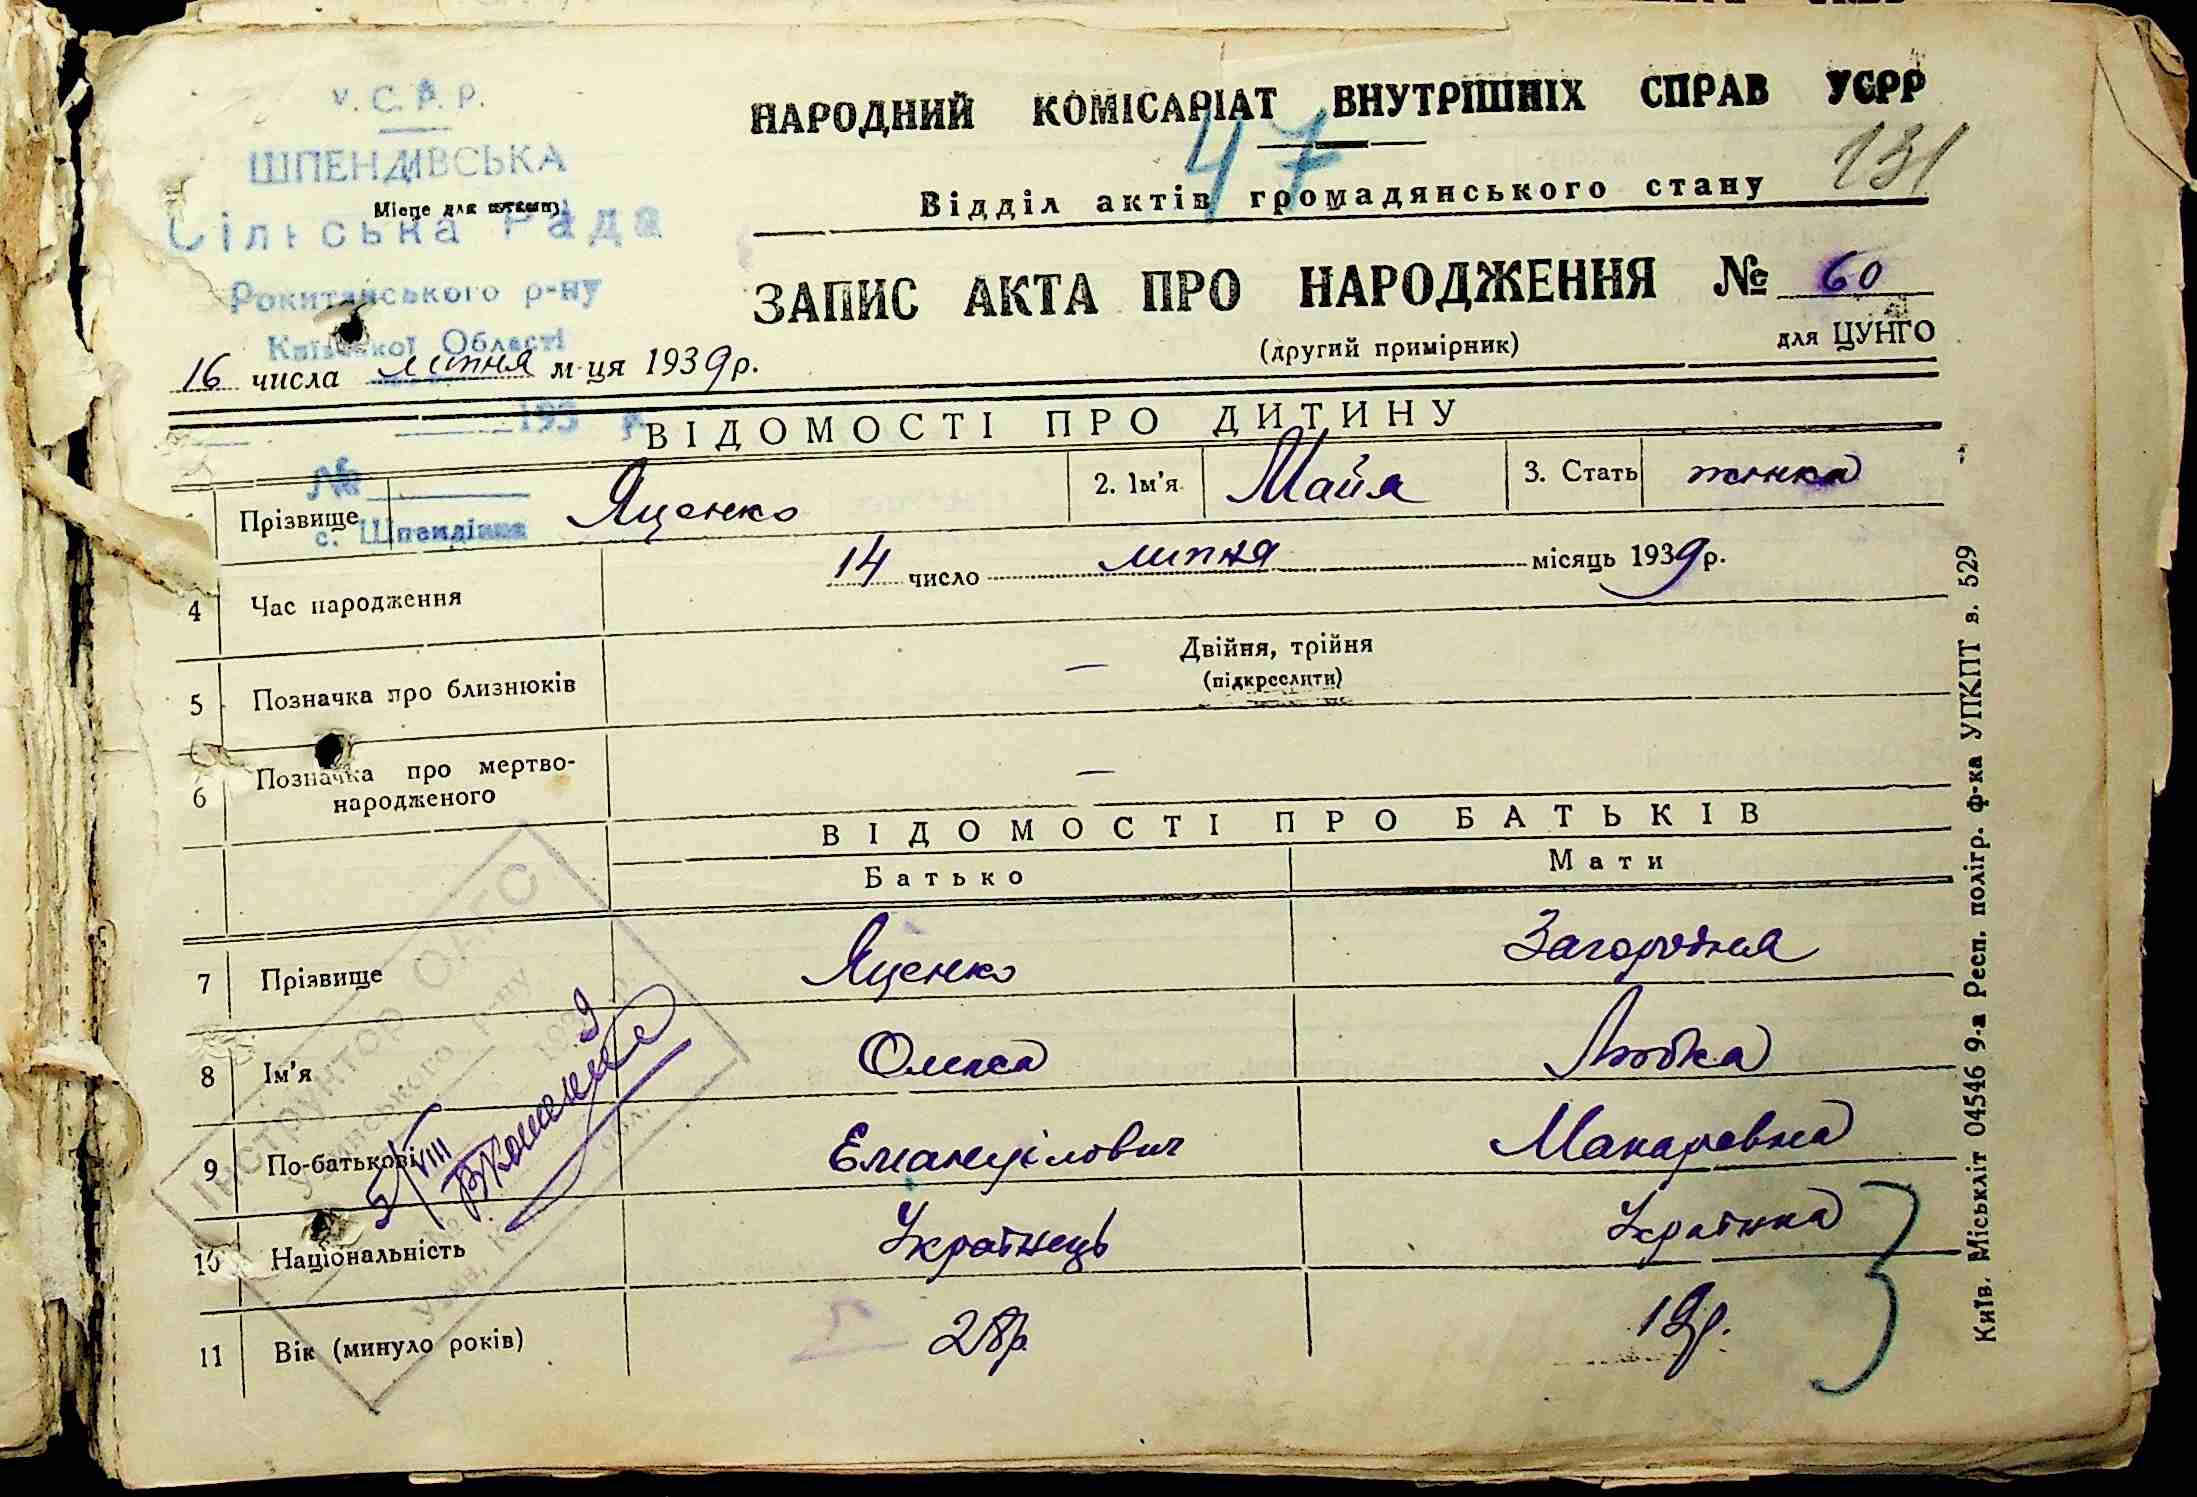 У. С. Р. Р.
ШПЕНДІВСЬКА
Місце для
Сільська Рада
Рокитянського р-ну
Київської Області
16 числа липня м-ця 1939 р.
193 р.
№
с. Шпендівка
НАРОДНИЙ КОМІСАРІАТ ВНУТРІШНІХ СПРАВ УСРР
47
131
Відділ актів громадянського стану
ЗАПИС АКТА ПРО НАРОДЖЕННЯ № 60
(другий примірник) для ЦУНГО
ВІДОМОСТІ ПРО ДИТИНУ
Прізвище Яценко 2. Ім'я Майя 3. Стать жінка
4 Час народження 14 число липня місяць 1939 р.
5 Позначка про близнюків — Двійня, трійня
(підкреслити)
6 Позначка про мертво-
народженого —
ВІДОМОСТІ ПРО БАТЬКІВ
Батько Мати
7 Прізвище Яценко Загородня
8 Ім'я Олекса Любка
9 По-батькові Емануілович Макаровна
10 Національність Українець Українка
11 Вік (минуло років) 28 р. 19 р.
3
Інструктор ОАГС
Узинського р-ну
193 9 р.
5/VIII
Узин, обл.
Київ. Міськліт 04546 9-а Респ. полігр. ф-ка УПКПТ з. 529